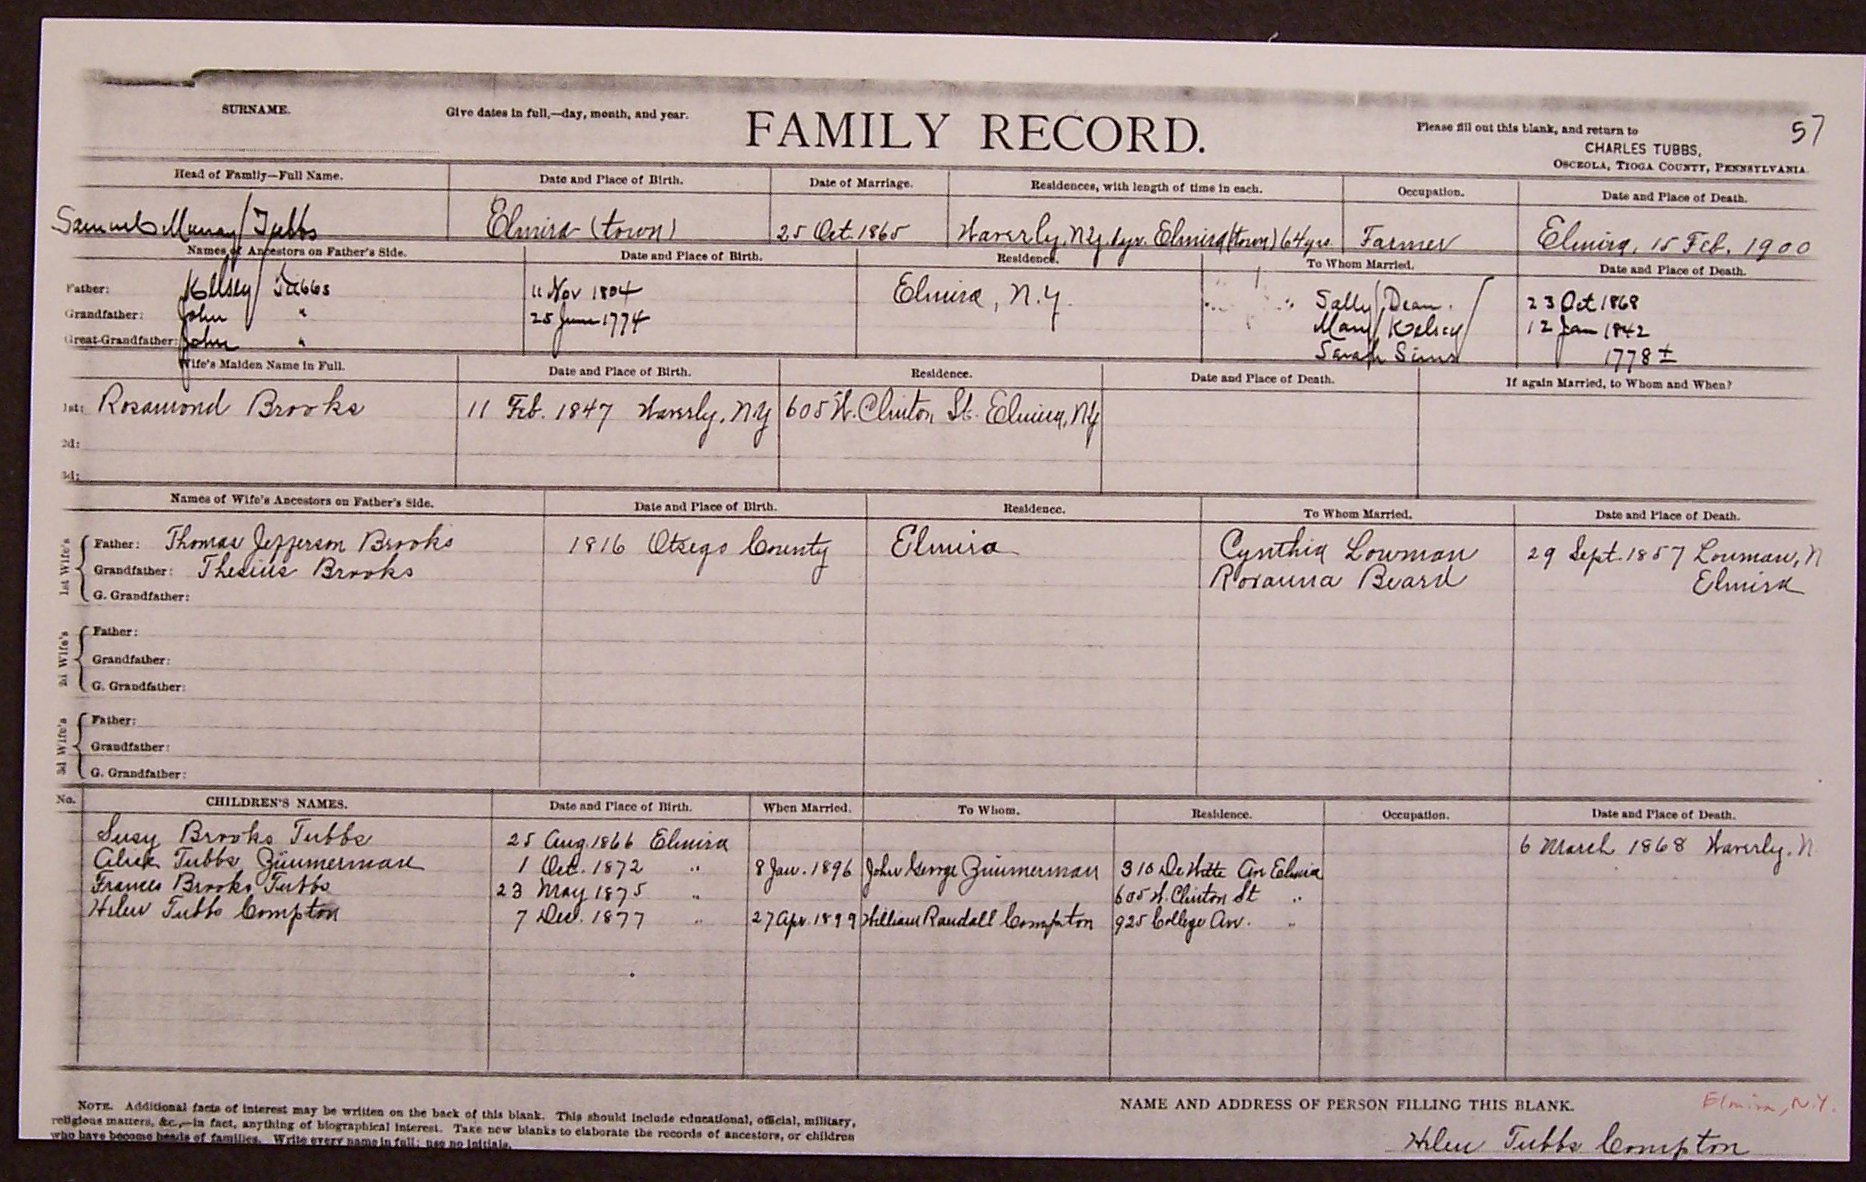 57
SURNAME. Give dates in full,—day, month, and year. FAMILY RECORD. Please fill out this blank, and return to
CHARLES TUBBS,
OSCEOLA, TIOGA COUNTY, PENNSYLVANIA.
Head of Family—Full Name. Date and Place of Birth. Date of Marriage. Residences, with length of time in each. Occupation. Date and Place of Death.
Samuel Murray Tubbs Elmira (town) 25 Oct. 1865 Waverly, N.Y. Elmira (town) 64 yrs. Farmer Elmira, 15 Feb. 1900
Names of Ancestors on Father's Side. Date and Place of Birth. Residence. To Whom Married. Date and Place of Death.
Father: Kelsey Tubbs 11 Nov 1804 Elmira, N.Y. Sally Dean. 23 Oct 1868
Grandfather: John " 25 June 1774 Mary Kelsey 12 Jan 1842
Great-Grandfather: John " Sarah Sims 1778 ±
Wife's Maiden Name in Full. Date and Place of Birth. Residence. Date and Place of Death. If again Married, to Whom and When?
1st: Rosamond Brooks 11 Feb. 1847 Waverly, N.Y 605 W. Clinton St. Elmira, N.Y
2d:
3d:
Names of Wife's Ancestors on Father's Side. Date and Place of Birth. Residence. To Whom Married. Date and Place of Death.
1st Wife's
Father: Thomas Jefferson Brooks 1816 Otsego County Elmira Cynthia Lowman 29 Sept. 1857 Lowman, N
Grandfather: Thesius Brooks Roxanna Beard Elmira
G. Grandfather:
2d Wife's
Father:
Grandfather:
G. Grandfather:
3d Wife's
Father:
Grandfather:
G. Grandfather:
No. CHILDREN'S NAMES. Date and Place of Birth. When Married. To Whom. Residence. Occupation. Date and Place of Death.
Susy Brooks Tubbs 25 Aug. 1866 Elmira 6 March 1868 Waverly, N
Alice Tubbs Zimmerman 1 Oct. 1872 " 8 Jan. 1896 John George Zimmerman 310 De Witte Av Elmira
Frances Brooks Tubbs 23 May 1875 " 605 W. Clinton St "
Helen Tubbs Compton 7 Dec. 1877 " 27 Apr. 1899 William Randall Compton 925 College Av. "
NOTE. Additional facts of interest may be written on the back of this blank. This should include educational, official, military,
religious matters, &c.,—in fact, anything of biographical interest. Take new blanks to elaborate the records of ancestors, or children
who have become heads of families. Write every name in full; use no initials.
NAME AND ADDRESS OF PERSON FILLING THIS BLANK. Elmira, N.Y.
Helen Tubbs Compton